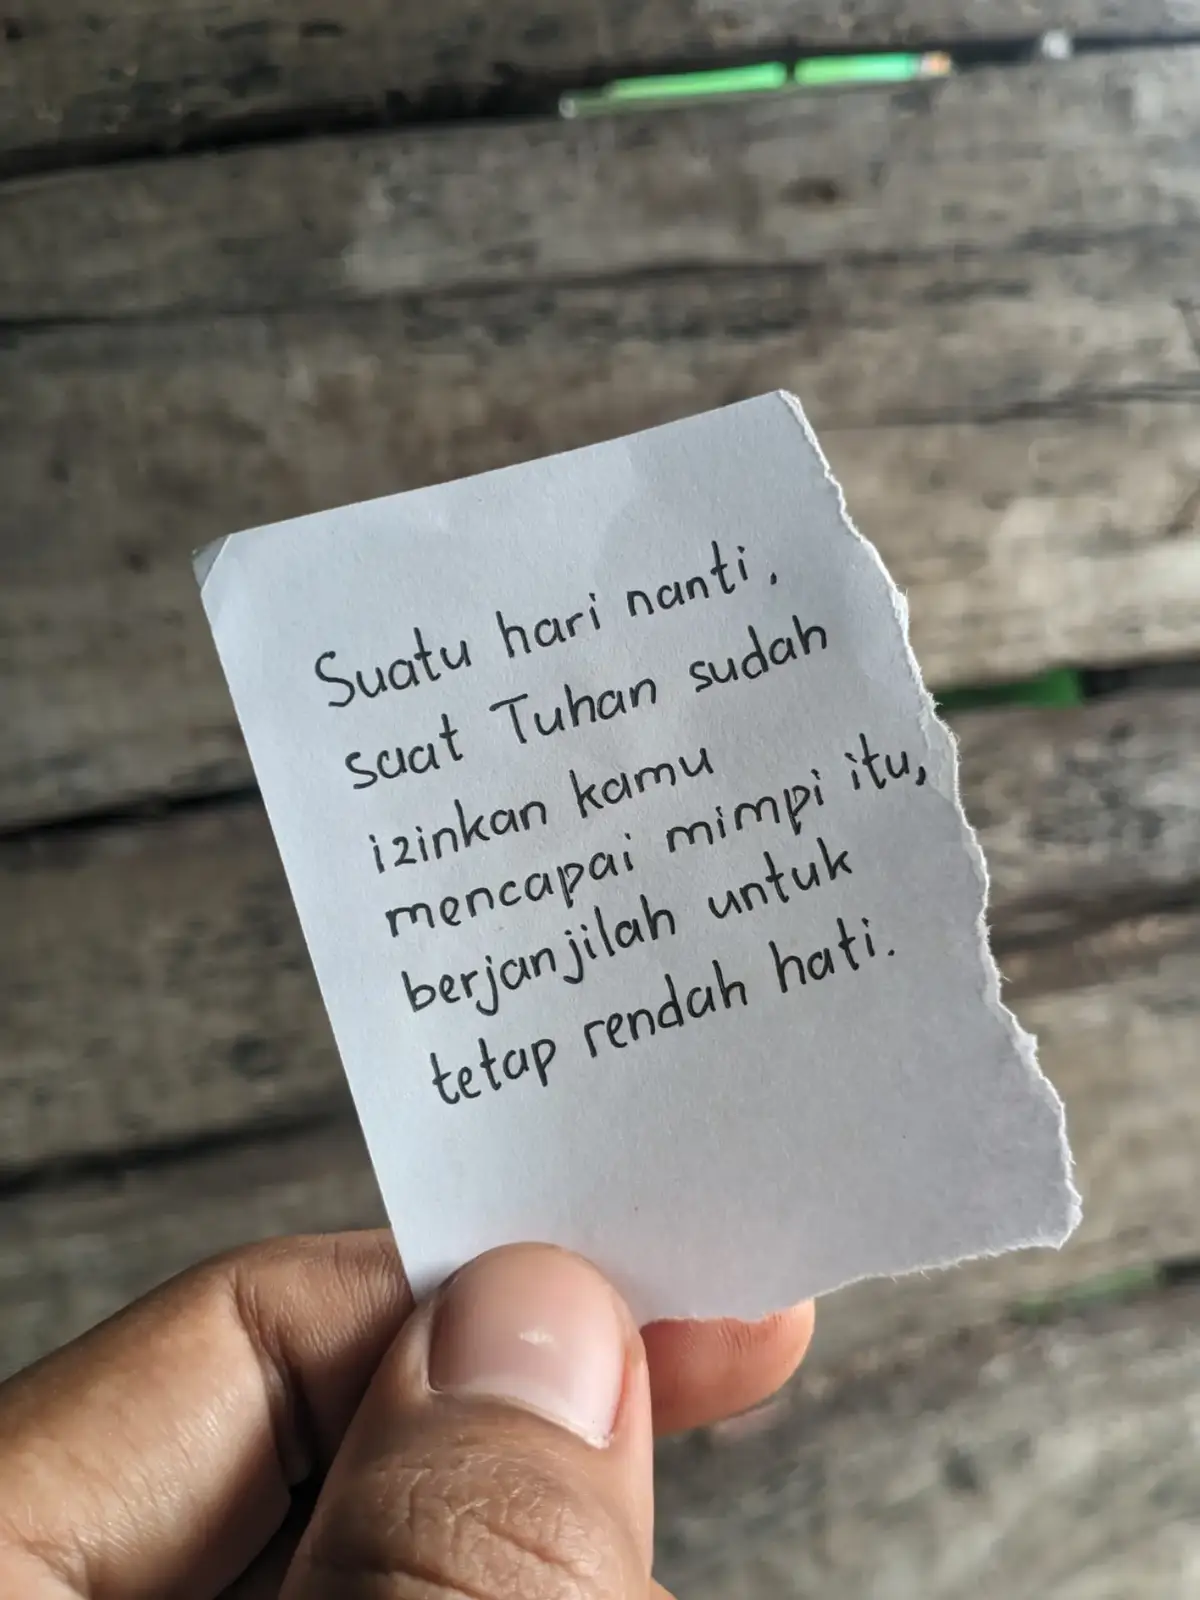 Suatu hari nanti.
saat Tuhan sudah
izinkan kamu
mencapai mimpi itu,
berjanjilah untuk
tetap rendah hati.